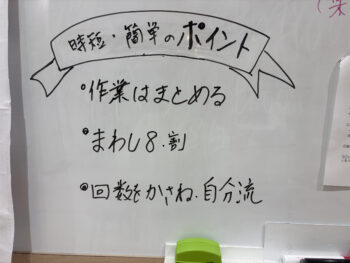 時短・簡単のポイント
・作業はまとめる
・まわし8.割
・回数をかさね.自分流